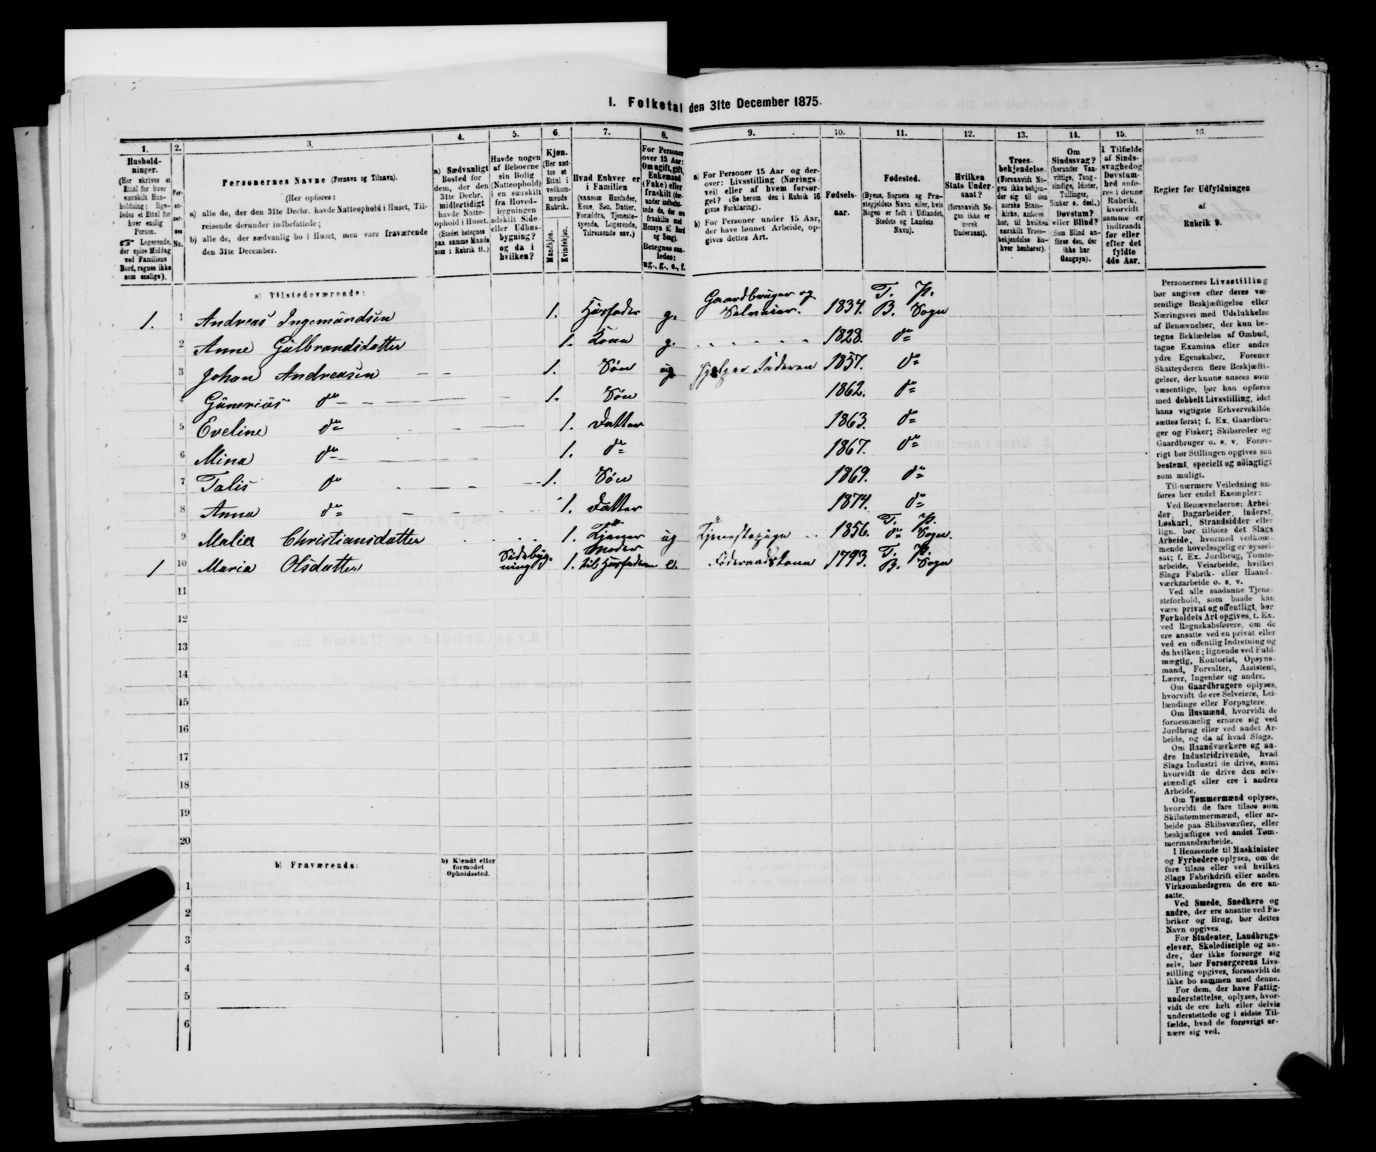 I. Folketal den 31te December 1875.
1. 2. 3. 4. 5. 6. 7. 8. 9. 10. 11. 12. 13. 14. 15. 16.
Husholdninger. (Her skrives et Ettal for hver særskilt Husholdning; ligeledes et Ettal for hver enlig Person. Logerende, der spise Middag ved Familiens Bord, regnes ikke som enslige).
Personernes No.
Personernes Navne (Fornavn og Tilnavn).
(Her opføres:
a) alle de, der den 31te Decbr. havde Natteophold i Huset, Tilreisende derunder indbefattede;
b) alle de, der sædvanlig bo i Huset, men vare fraværende den 31te December.
a) Sædvanligt Bosted for dem, der den 31te Decbr. midlertidigt havde Natteophold i Huset. (Stedet betegnes paa samme Maade som i Rubrik 11.)
Havde nogen af Beboerne sin Bolig (Natteophold) i en særskilt fra Hovedbygningen adskilt Side- eller Udhusbygning? og da i hvilken?
Kjøn. (Her sættes et Ettal i vedkommende Rubrik.
Mandkjøn. Kvindekjøn.
Hvad Enhver er i Familien (saasom Husfader, Kone, Søn, Datter, Forældre, Tjenestetyende, Logerende, Tilreisende osv.)
For Personer over 15 Aar: Om ugift, gift, Enkemand (Enke) eller fraskilt
Betegnes saaledes: ug., g., e., f.
a) For Personer 15 Aar og derover: Livsstilling (Næringsvei) eller af hvem forsørget? (Se herom den i Rubrik 16 givne Forklaring).
b) For Personer under 15 Aar, der have lønnet Arbeide, opgives dettes Art.
Fødselsaar.
Fødested. (Byens, Sognets og Præstegjeldets Navn eller, hvis Nogen er født i Udlandet, Stedets og Landets Navn).
Hvilken Stats Undersaat? (forsaavidt Nogen ikke er norsk Undersaat).
Troesbekjendelse. (Forsaavidt Nogen ikke bekjender sig til den norske Statskirke, anføres særskilt Troesbekjendelse Enhver henhører).
Om Sindssvag? (herunder Vanvittige, Tungsindige, Idioter, Tullinger, Sinker o. desl.) Døvstum? eller Blind? (Som Blind anføres den, der ikke har Gangsyn).
I Tilfælde af Sindssvaghed og Døvstumhed anføres i denne Rubrik, hvorvidt samme er indtraadt før eller efter det fyldte 4de Aar.
Regler før Udfyldningen af Rubrik 9.
a) Tilstedeværende:
1. 1 Andreas Ingemundsen 1. Husfader g. Gaardbruger og Selveier. 1834. T. P. B. Sogn
2 Anne Gulbrandsdatter 1. Kone g. 1828. do
3 Johan Andreasen 1. Søn ug Hjelper Faderen 1857. do
4 Gunerius do 1. Søn 1862. do
5 Eveline do 1. Datter 1863. do
6 Mina do 1. do 1867. do
7 Talis do 1. Søn 1869. do
8 Anna do 1. Datter 1874. do
9 Malia Christiansdatter 1. Tjener ug Tjenestepige 1856. T. P. do Sogn.
1 10 Maria Olsdatter Sidebygning 1. Moder til Husfaderen e. Føderaadskone 1793. T. P. B. Sogn
11
12
13
14
15
16
17
18
19
20
b) Fraværende:
b) Kjendt eller formodet Opholdssted.
1
2
3
4
5
6
Personernes Livsstilling bør angives efter deres væsentlige Beskjæftigelse eller Næringsvei med Udelukkelse af Benævnelser, der kun betegne Beklædelse af Ombud, tagne Examina eller andre ydre Egenskaber. Forener Skatteyderen flere Beskjæftigelser, der kunne ansees som væsentlige, bør han opføres med dobbelt Livsstilling, idet hans vigtigste Erhvervskilde sættes først; f. Ex. Gaardbruger og Fisker; Skibsreder og Gaardbruger o. s. v. Forøvrigt bør Stillingen opgives saa bestemt, specielt og nøiagtigt som muligt.
Til nærmere Veiledning anføres her endel Exempler:
Ved Benævnelserne: Arbeider, Dagarbeider, Inderst, Løskarl, Strandsidder eller lign. bør tilføies det Slags Arbeide, hvormed vedkommende hovedsagelig er sysselsat; f. Ex. Jordbrug, Tomtearbeide, Veiarbeide, hvilket Slags Fabrik- eller Haandværksarbeide o. s. v.
Ved alle saadanne Tjenesteforhold, som baade kan være privat og offentligt, bør Forholdets Art opgives, f. Ex. ved Regnskabsførere, om de ere ansatte ved en privat eller ved en offentlig Indretning og da hvilken; lignende ved Fuldmægtig, Kontorist, Opsynsmand, Forvalter, Assistent, Lærer, Ingeniør og andre.
Om Gaardbrugere oplyses, hvorvidt de ere Selveiere, Leilændinge eller Forpagtere.
Om Husmænd, hvorvidt de fornemmelig ernære sig ved Jordbrug eller ved andet Arbeide, og da af hvad Slags.
Om Haandværkere og andre Industridrivende, hvad Slags Industri de drive, samt hvorvidt de drive den selvstændigt eller ere i andres Arbeide.
Om Tømmermænd oplyses, hvorvidt de fare tilsøs som Skibstømmermænd, eller arbeide paa Skibsværfter, eller beskjæftiges ved andet Tømmermandsarbeide.
I Henseende til Maskinister og Fyrbødere oplyses, om de fare tilsøs eller ved hvilket Slags Fabrikdrift eller anden Virksomhedsgren de ere ansatte.
Ved Smede, Snedkere og andre, der ere ansatte ved Fabriker og Brug, bør dettes Navn opgives.
For Studenter, Landbrugselever, Skoledisciple og andre, der ikke forsørge sig selv, bør Forsørgerens Livsstilling opgives, forsaavidt de ikke bo sammen med denne.
For dem, der have Fattigunderstøttelse, oplyses, hvorvidt de ere helt eller delvis understøttede og i sidste Tilfælde, hvad de forøvrigt ernære sig ved.